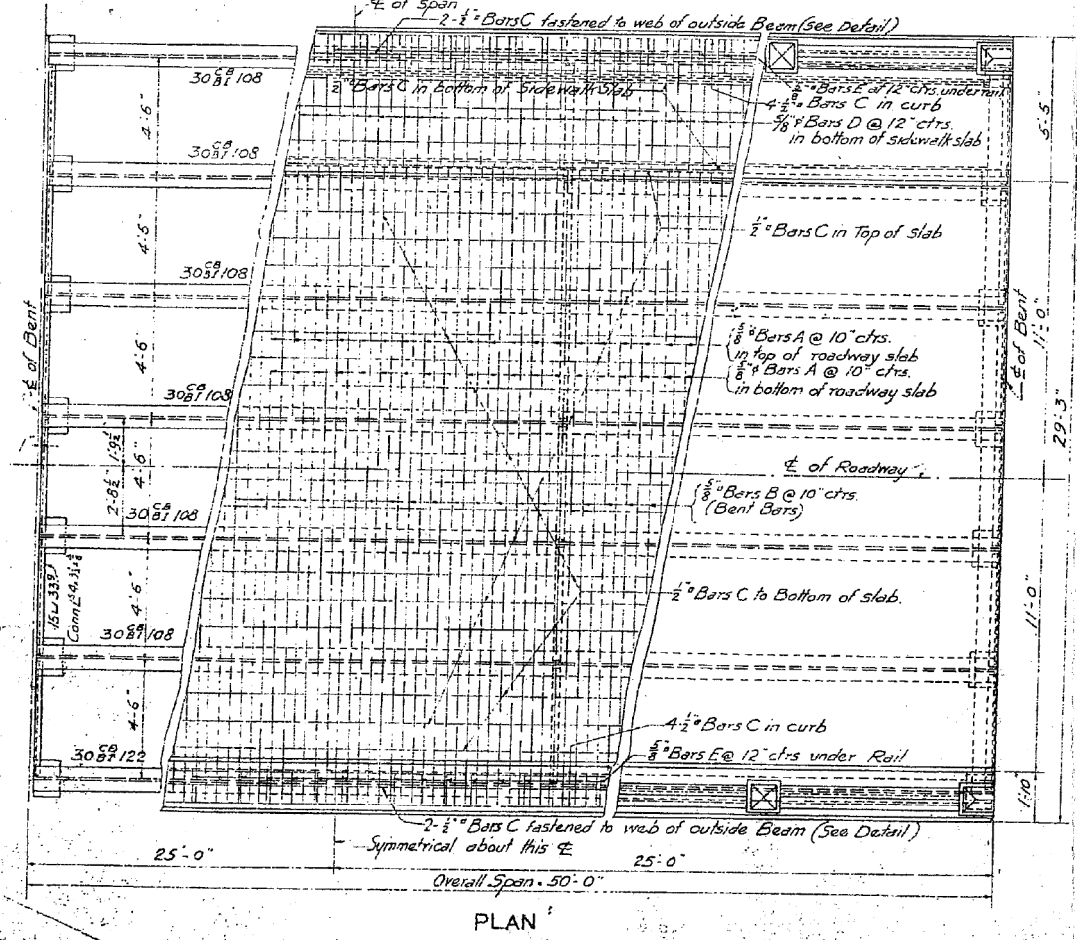 ℄ of Span
2-½"ᵠ Bars C fastened to web of outside Beam (See Detail)
30 CB BI 108
½"ᵠ Bars C in bottom of Sidewalk Slab
⅝"ᵠ Bars E at 12" ctrs. under rail
4-½"ᵠ Bars C in curb
⅝"ᵠ Bars D @ 12" ctrs.
in bottom of sidewalk slab
5'-5"
4'-6"
30 CB BI 108
½"ᵠ Bars C in Top of slab
4'-6"
30 CB BI 108
℄ of Bent
℄ of Bent
11'-0"
⅝"ᵠ Bars A @ 10" ctrs.
in top of roadway slab
⅝"ᵠ Bars A @ 10" ctrs.
in bottom of roadway slab
4'-6"
30 CB BI 108
29'-3"
℄ of Roadway
2'-8½"
1'-9½"
4'-6"
⅝"ᵠ Bars B @ 10" ctrs.
(Bent Bars)
30 CB BI 108
½"ᵠ Bars C to Bottom of slab.
15 ⊔ 33.9
4'-6"
11'-0"
30 CB BI 108
4'-6"
4-½"ᵠ Bars C in curb
⅝"ᵠ Bars E @ 12" ctrs under Rail
30 CB BI 122
1'-10"
2-½"ᵠ Bars C fastened to web of outside Beam (See Detail)
Symmetrical about this ℄
25'-0"
25'-0"
Overall Span = 50'-0"
PLAN